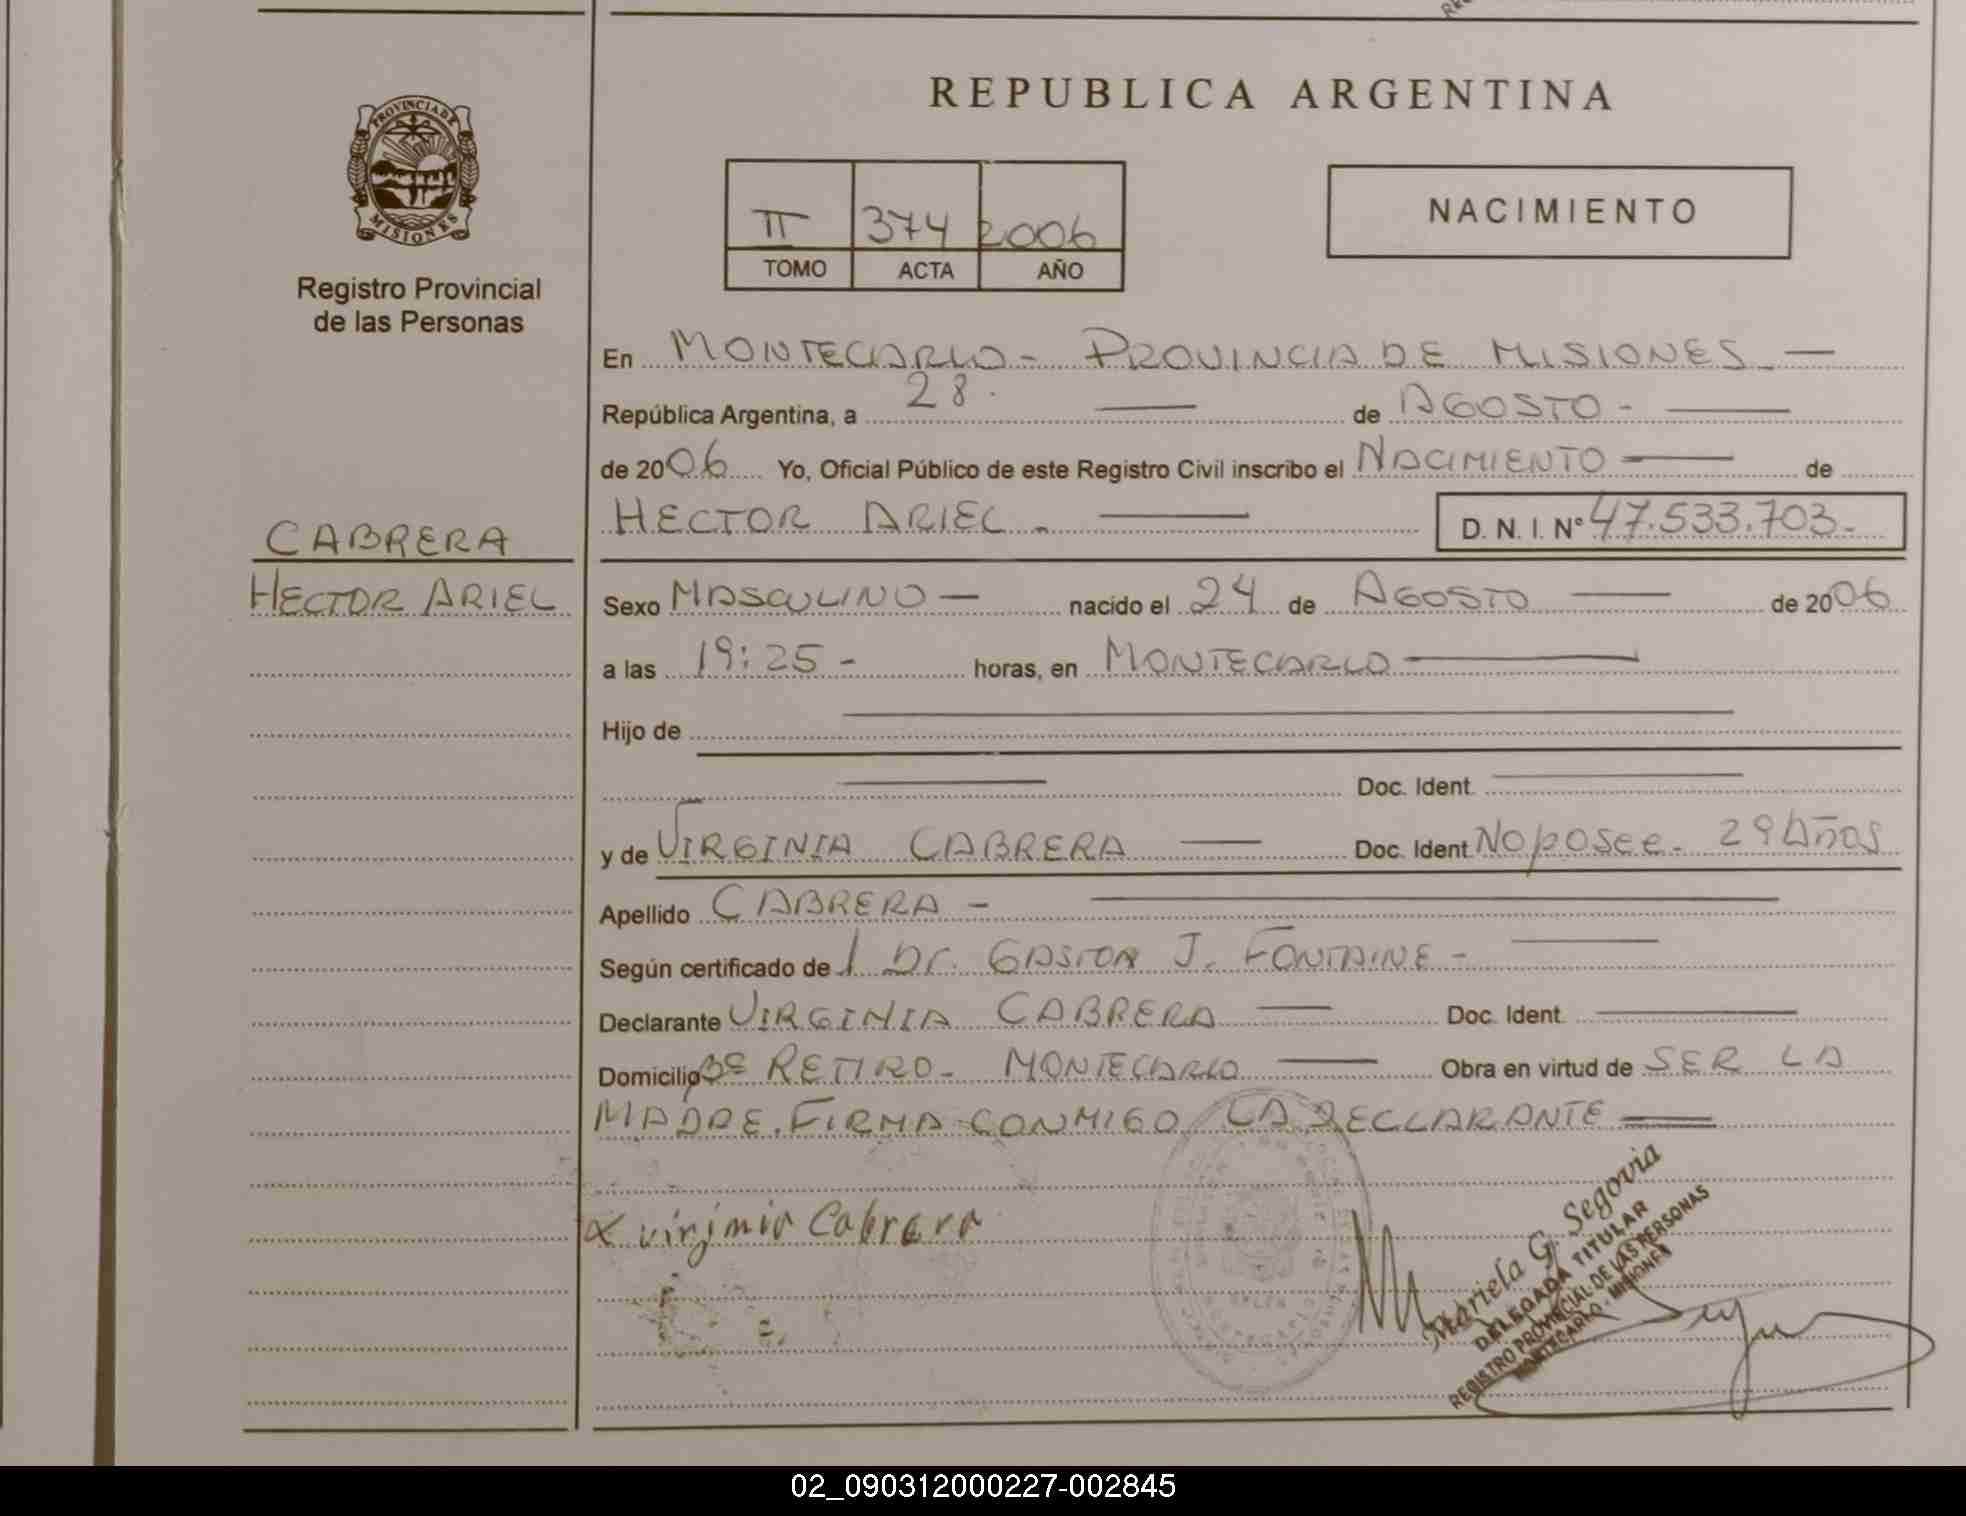 REPUBLICA ARGENTINA
PROVINCIA DE
MISIONES
Registro Provincial
de las Personas
II 374 2006
TOMO ACTA AÑO
NACIMIENTO
En MONTECARLO - PROVINCIA DE MISIONES -
República Argentina, a 28. de AGOSTO -
de 2006 Yo, Oficial Público de este Registro Civil inscribo el NACIMIENTO de
HECTOR ARIEL - D. N. I. N° 47.533.703-
CABRERA
HECTOR ARIEL
Sexo MASCULINO - nacido el 24 de AGOSTO de 2006
a las 19:25 - horas, en MONTECARLO
Hijo de
Doc. Ident.
y de VIRGINIA CABRERA Doc. Ident. No posee - 29 Años
Apellido CABRERA -
Según certificado de 1 Dr. GASTON J. FONTAINE -
Declarante VIRGINIA CABRERA Doc. Ident.
Domicilio Bº RETIRO - MONTECARLO Obra en virtud de SER LA
MADRE. FIRMA CONMIGO LA DECLARANTE
x virjinia Cabrera
Mariela G. Segovia
DELEGADA TITULAR
REGISTRO PROVINCIAL DE LAS PERSONAS
MONTECARLO - MISIONES
02_090312000227-002845